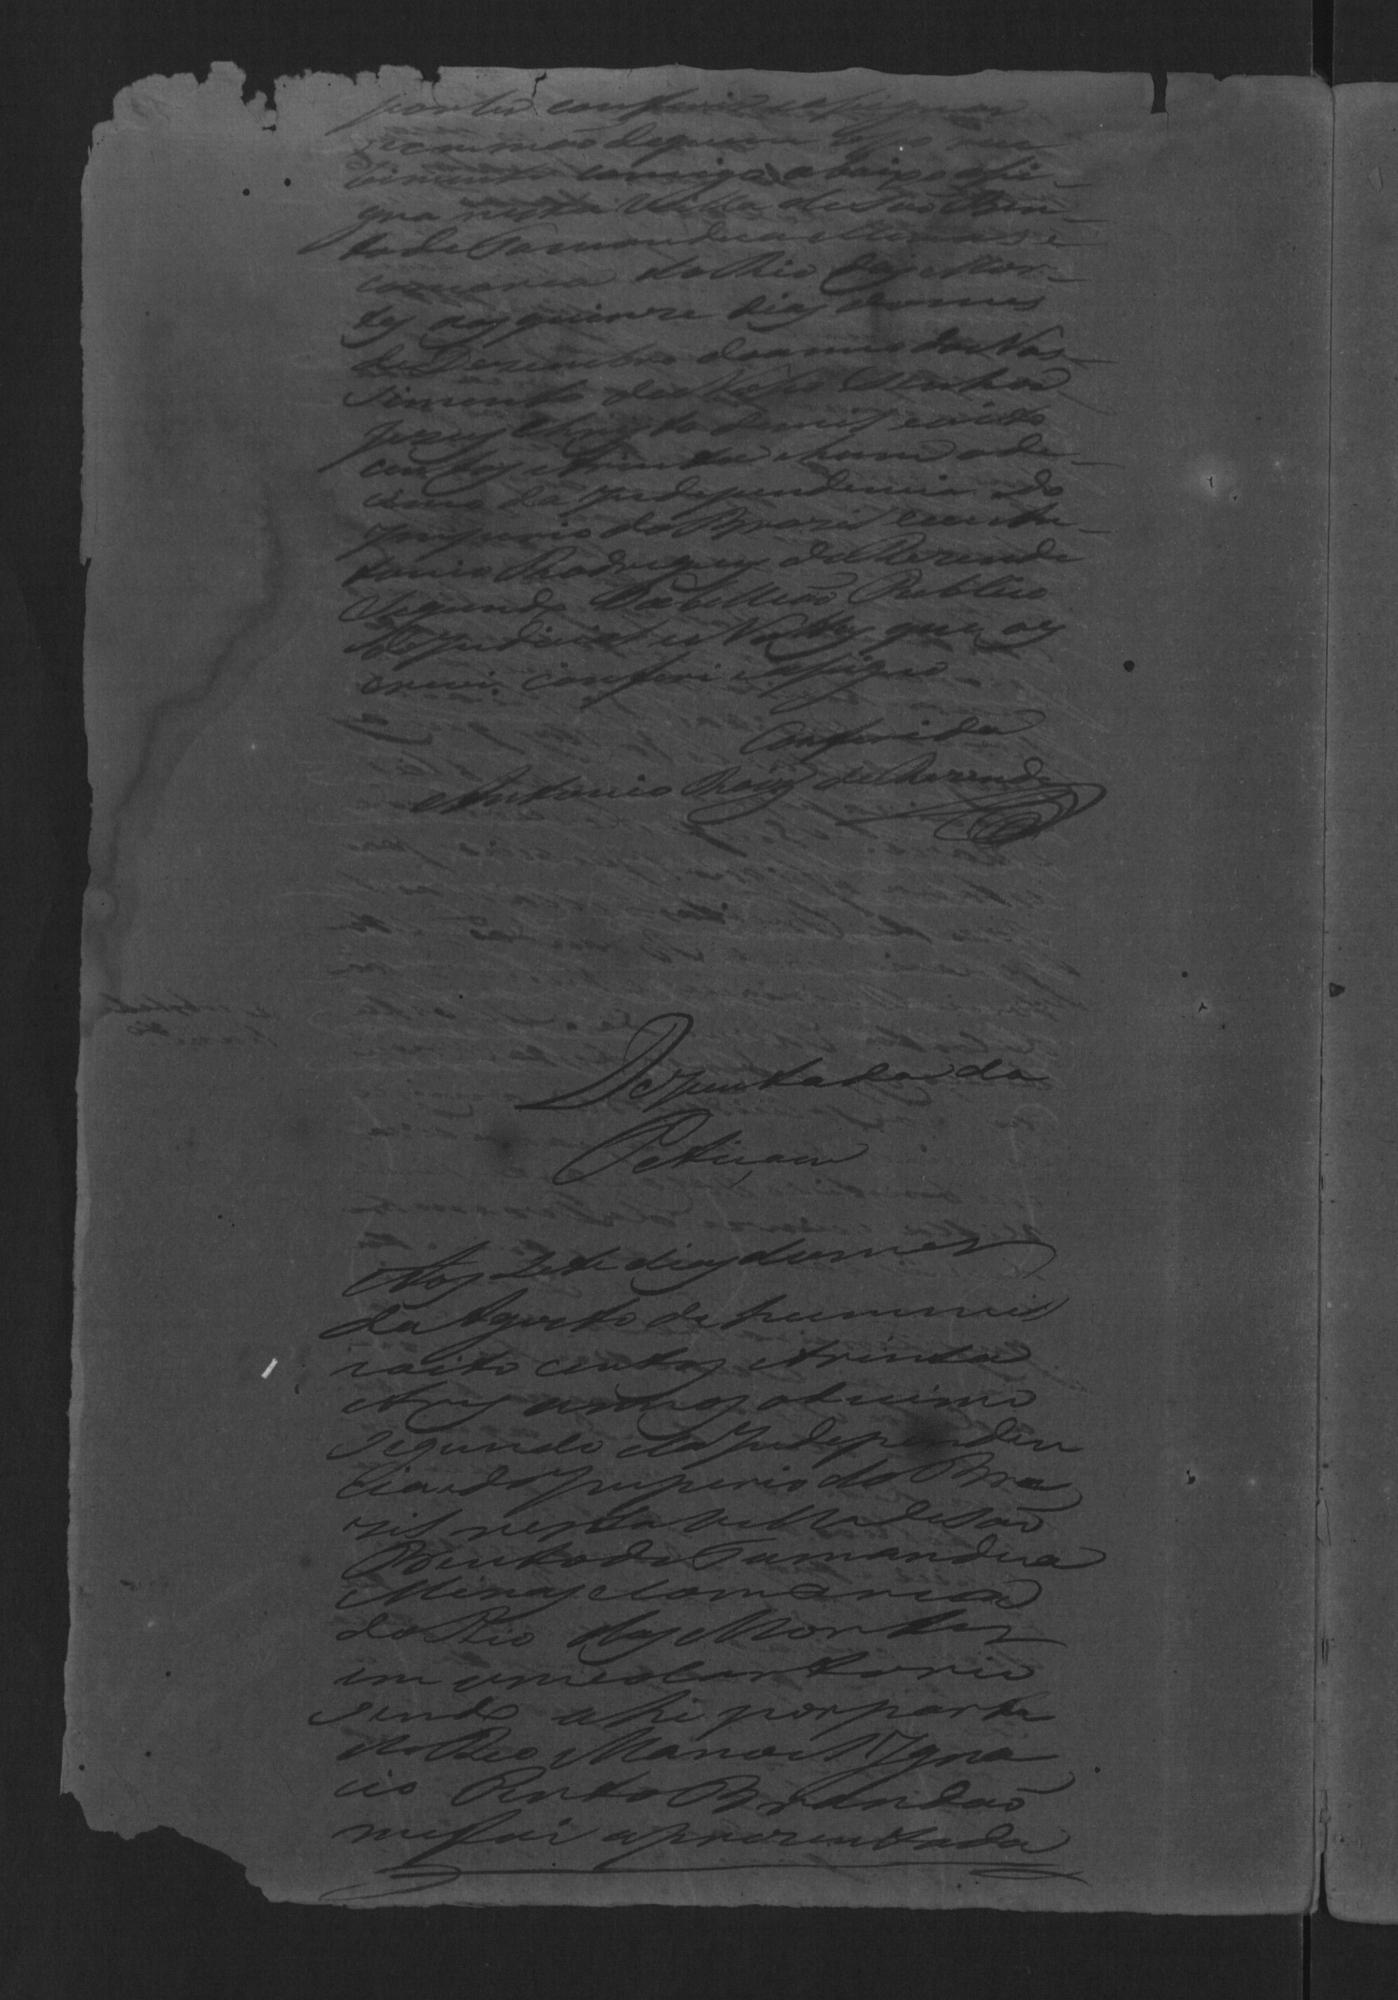 por ter conferido e assignar
bimento comigo abaixo assi-
gna nesta Villa de São Ben-
to de Tamandua Minas e
comarca do Rio das Mor-
tes aos quinze dias do mes
de Dezembro do anno do Nas-
simento de Nosso Senhor
Jesus Christo de mil e oito
centos e trinta e hum o de-
cimo da Independencia do
Imperio do Brazil Eu An-
tonio Rodrigues de Rezende
Segundo Tabelliao Publico
do Judicial e Nottas que o es
crevi conferi e assigno.
Conferida
Antonio Roiz de Rezende
De juntada da
Petiçaõ
Aos sete dias do mes
de Agosto de hum mil
e oito centos e trinta
e tres annos o decimo
segundo da Independen
cia do Imperio do Bra
zil nesta Villa de São
Bento de Tamandua
Minas e Comarca
do Rio das Mortes
em o meo Cartorio
sendo ahi por parte
do Reo Manoel Igna
cio Pinto Brandão
me foi aprezentada